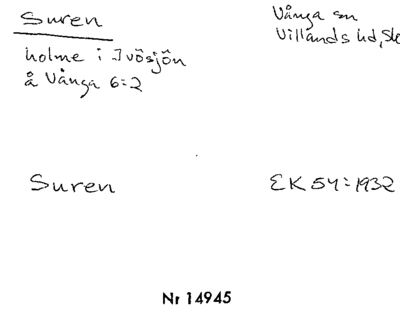 Suren
Vånga sn
Villands hd, Sk
holme i Ivösjön
å Vånga 6:2
Suren
EK 54:1932
Nr 14945